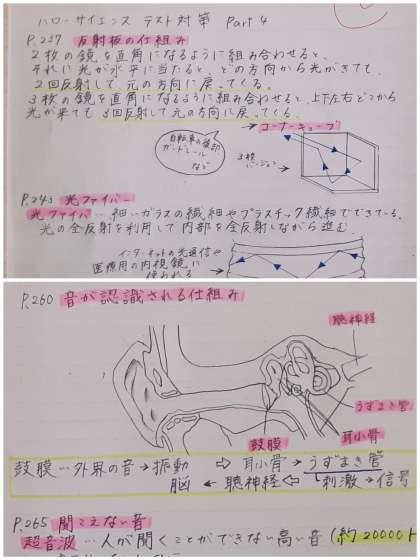 ハローサイエンス テスト対策 Part 4
P.237 反射板の仕組み
2枚の鏡を直角になるように組み合わせると、
それに光が水平に当たると、どの方向から光がきても、
2回反射して、元の方向に戻ってくる。
3枚の鏡を直角になるように組み合わせると、上下左右どこから
光が来ても 3回反射して元の方向に戻ってくる。
コーナーキューブ
自転車の後部
ガードレール
など
3枚
バージョン
P.243 光ファイバー
光ファイバ… 細いガラスの繊細やプラスチック繊細でできている。
光の全反射を利用して内部を全反射しながら進む。
インターネットの光通信や
医療用の内視鏡に
使われる
P.260 音が認識される仕組み
聴神経
うずまき管
耳小骨
鼓膜
鼓膜…外界の音→振動 ⇨ 耳小骨→うずまき管
脳 ← 聴神経 ⇦ 刺激→信号
P.265 聞こえない音
超音波…人が聞くことができない高い音(約20000